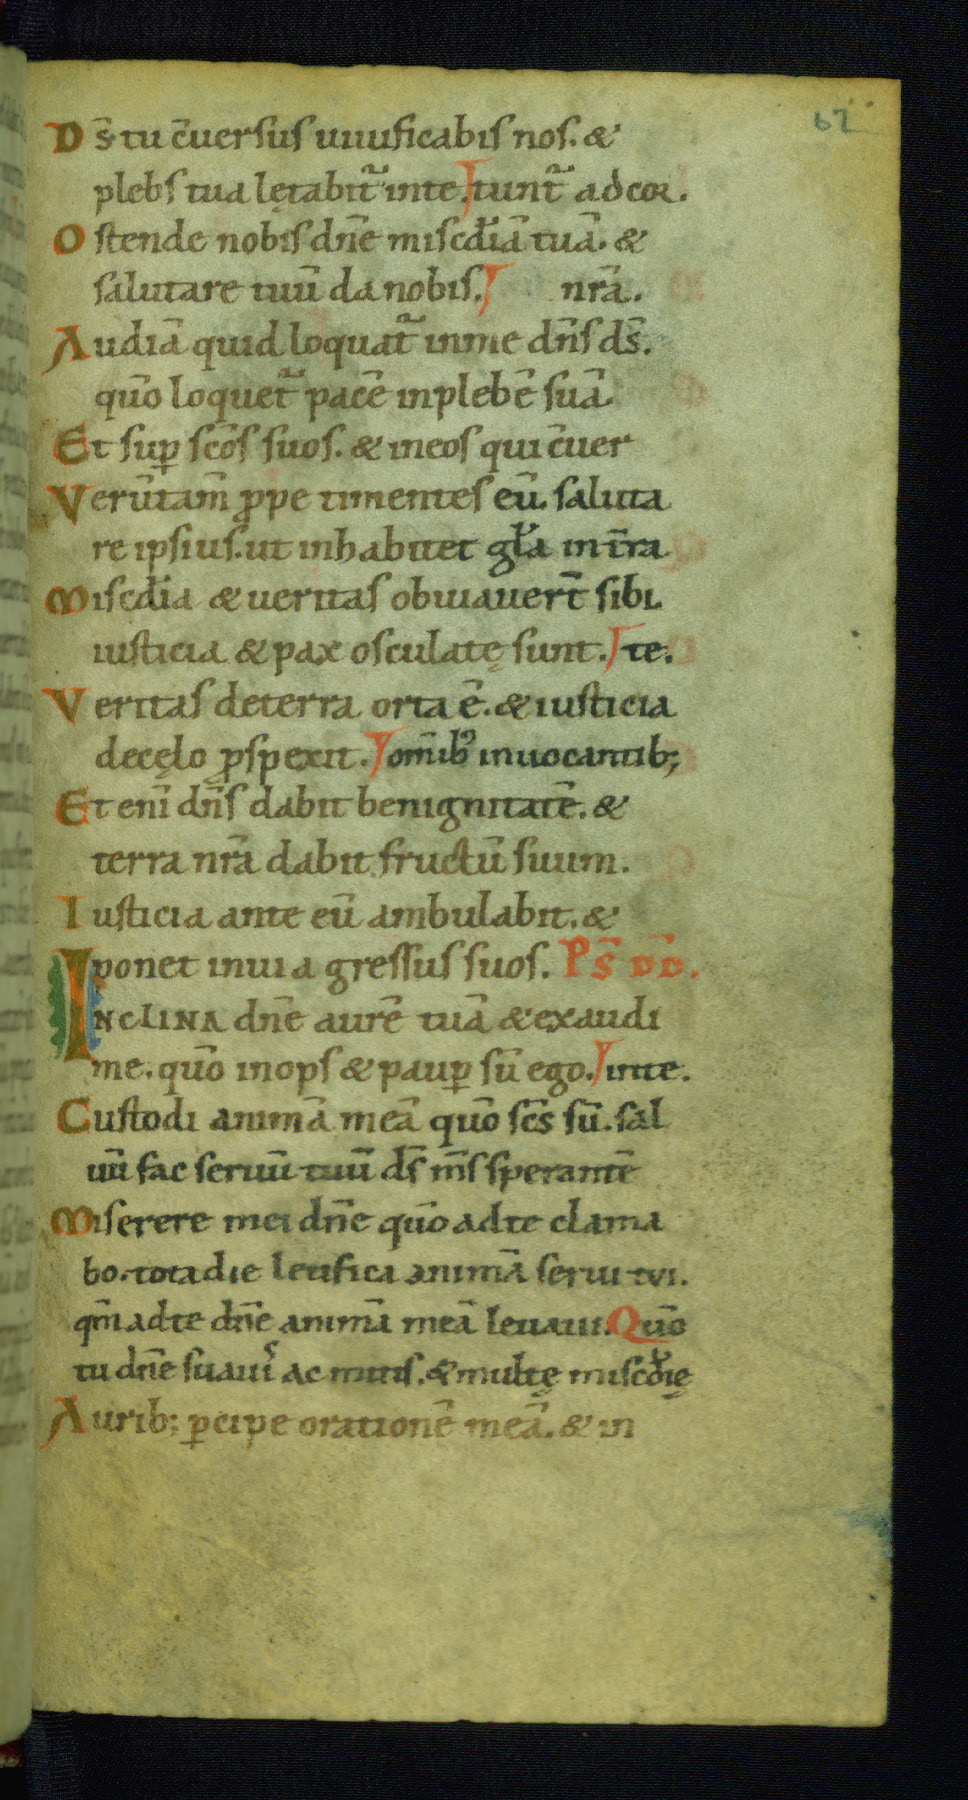 62
Ds̄ tu c̄uersus uiuificabis nos. &
plebs tua lętabit᷑ inte. tunt᷑ adcor.
Ostende nobis dn̄e misc̄diā tuā. &
salutare tuū da nobis. nr̄a.
Audiā quid loquat᷑ inme dn̄s ds̄.
quō loquet᷑ pacē inplebē suā
Et sup̲ sc̄os suos. & ineos qui c̄uer
Verūtam̄ ꝓpe timentes eū. saluta
re ipsius. ut inhabitet gl̄a int̄ra
Misc̄dia & ueritas obuiauer̄t sibi.
iusticia & pax osculatę sunt. te.
Veritas deterra orta ē. & iusticia
decęlo ꝓspexit. om̄ibꝰ inuocantib;
Et enī dn̄s dabit benignitatē. &
terra nr̄a dabit fructū suum.
Iusticia ante eū ambulabit. &
ponet inuia gressus suos. Ps̄ DD̄.
INCLINA dn̄e aurē tuā & exaudi
me. quō inops & paup̲ sū ego. inte.
Custodi animā meā quō sc̄s sū. sal
uū fac seruū tuū ds̄ m̄s sperantē
Miserere mei dn̄e quō adte clama
bo. totadie letifica animā serui tui.
qm̄ adte dn̄e animā meā leuaui. Quō
tu dn̄e suauis ac mitis. & multę misc̄dię
Aurib; p̲cipe orationē meā. & in